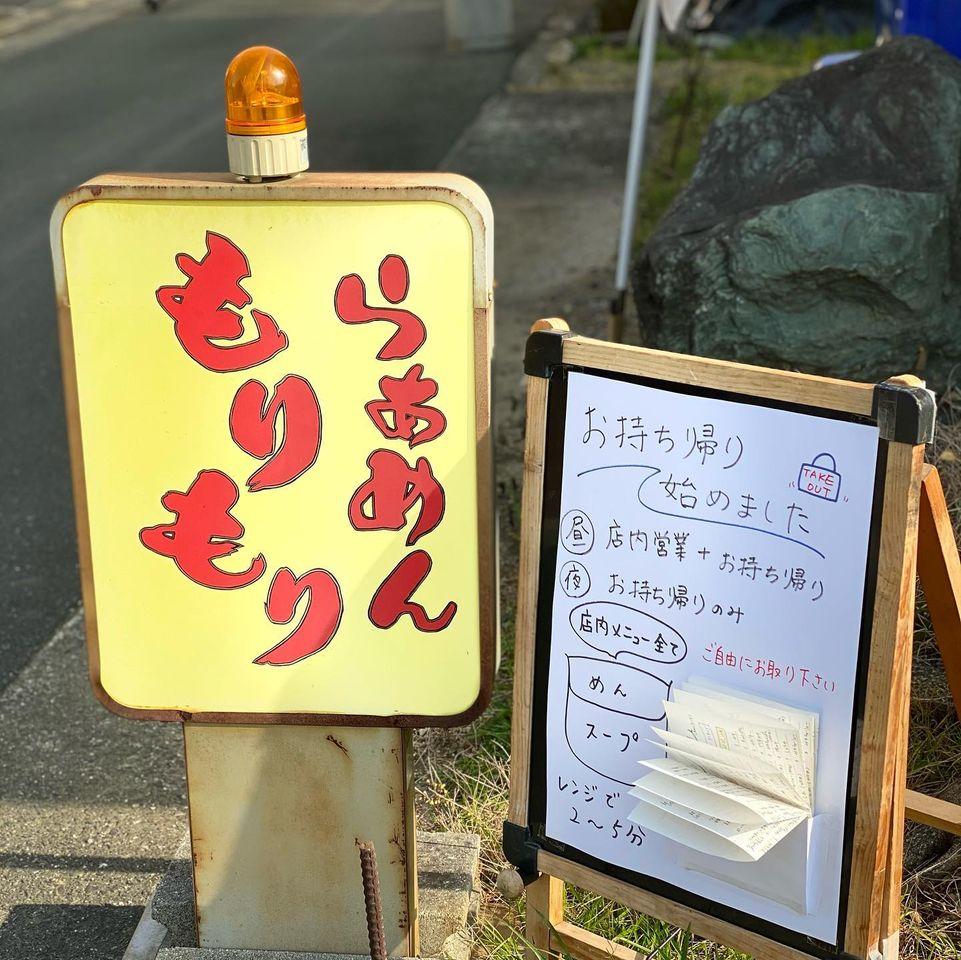 らぁめん
もりもり
お持ち帰り
始めました
TAKE
OUT
昼 店内営業+お持ち帰り
夜 お持ち帰りのみ
店内メニュー全て
ご自由にお取り下さい
めん
スープ
レンジで
2〜5分